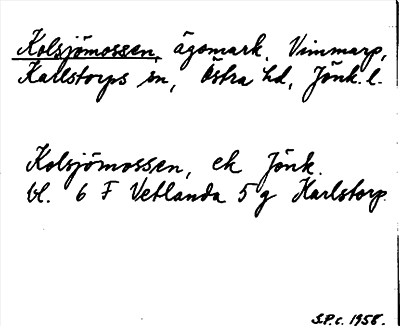 Kolsjömossen, ägomark, Vimmarp,
Karlstorps sn, Östra hd, Jönk. l.
Kolsjömossen, ek Jönk.
bl. 6 F Vetlanda 5 g Karlstorp.
S.P.c. 1958.